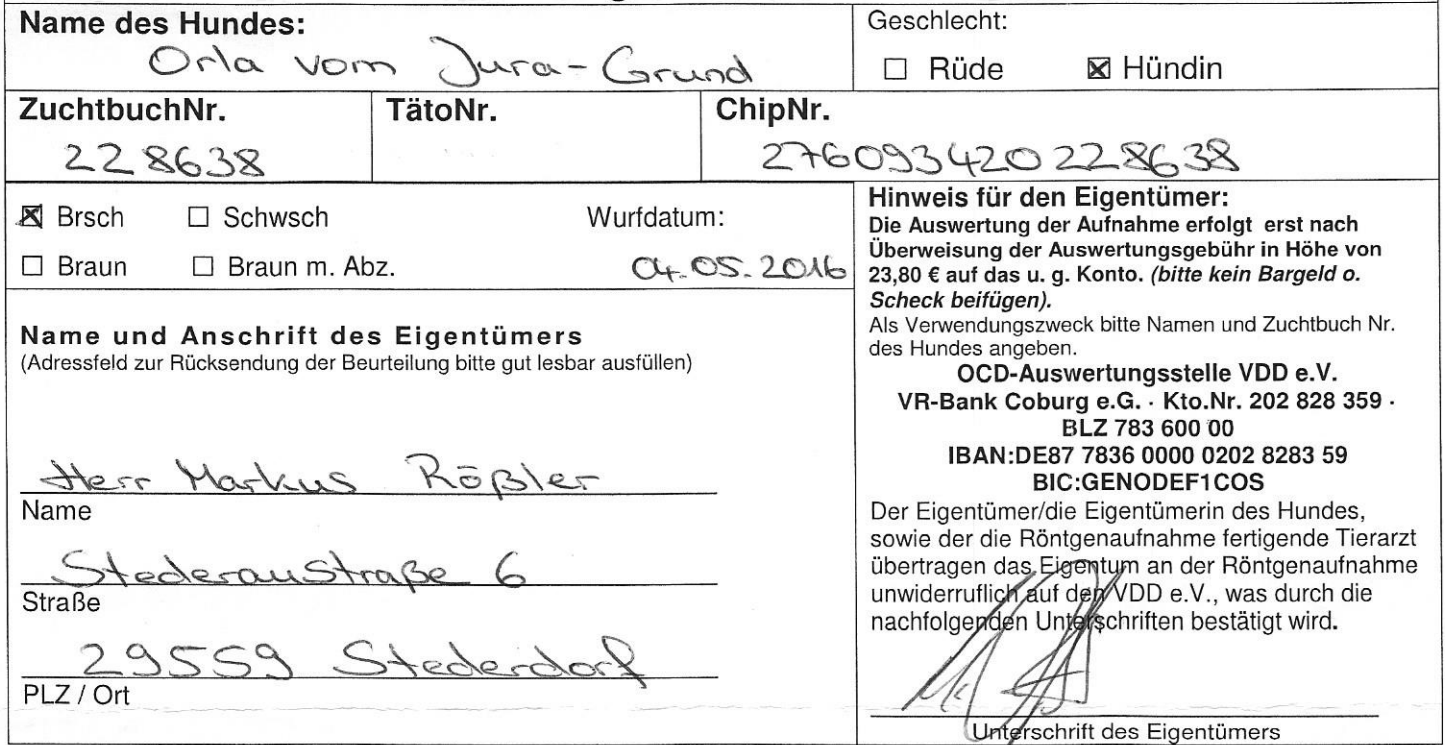 Name des Hundes:
Orla vom Jura-Grund
Geschlecht:
☐ Rüde ☒ Hündin
ZuchtbuchNr.
228638
TätoNr.
ChipNr.
276093420228638
☒ Brsch ☐ Schwsch
☐ Braun ☐ Braun m. Abz.
Wurfdatum:
04.05.2016
Name und Anschrift des Eigentümers
(Adressfeld zur Rücksendung der Beurteilung bitte gut lesbar ausfüllen)
Herr Markus Rößler
Name
Stederaustraße 6
Straße
29559 Stederdorf
PLZ / Ort
Hinweis für den Eigentümer:
Die Auswertung der Aufnahme erfolgt erst nach
Überweisung der Auswertungsgebühr in Höhe von
23,80 € auf das u. g. Konto. (bitte kein Bargeld o.
Scheck beifügen).
Als Verwendungszweck bitte Namen und Zuchtbuch Nr.
des Hundes angeben.
OCD-Auswertungsstelle VDD e.V.
VR-Bank Coburg e.G. · Kto.Nr. 202 828 359 ·
BLZ 783 600 00
IBAN:DE87 7836 0000 0202 8283 59
BIC:GENODEF1COS
Der Eigentümer/die Eigentümerin des Hundes,
sowie der die Röntgenaufnahme fertigende Tierarzt
übertragen das Eigentum an der Röntgenaufnahme
unwiderruflich auf den VDD e.V., was durch die
nachfolgenden Unterschriften bestätigt wird.
Unterschrift des Eigentümers